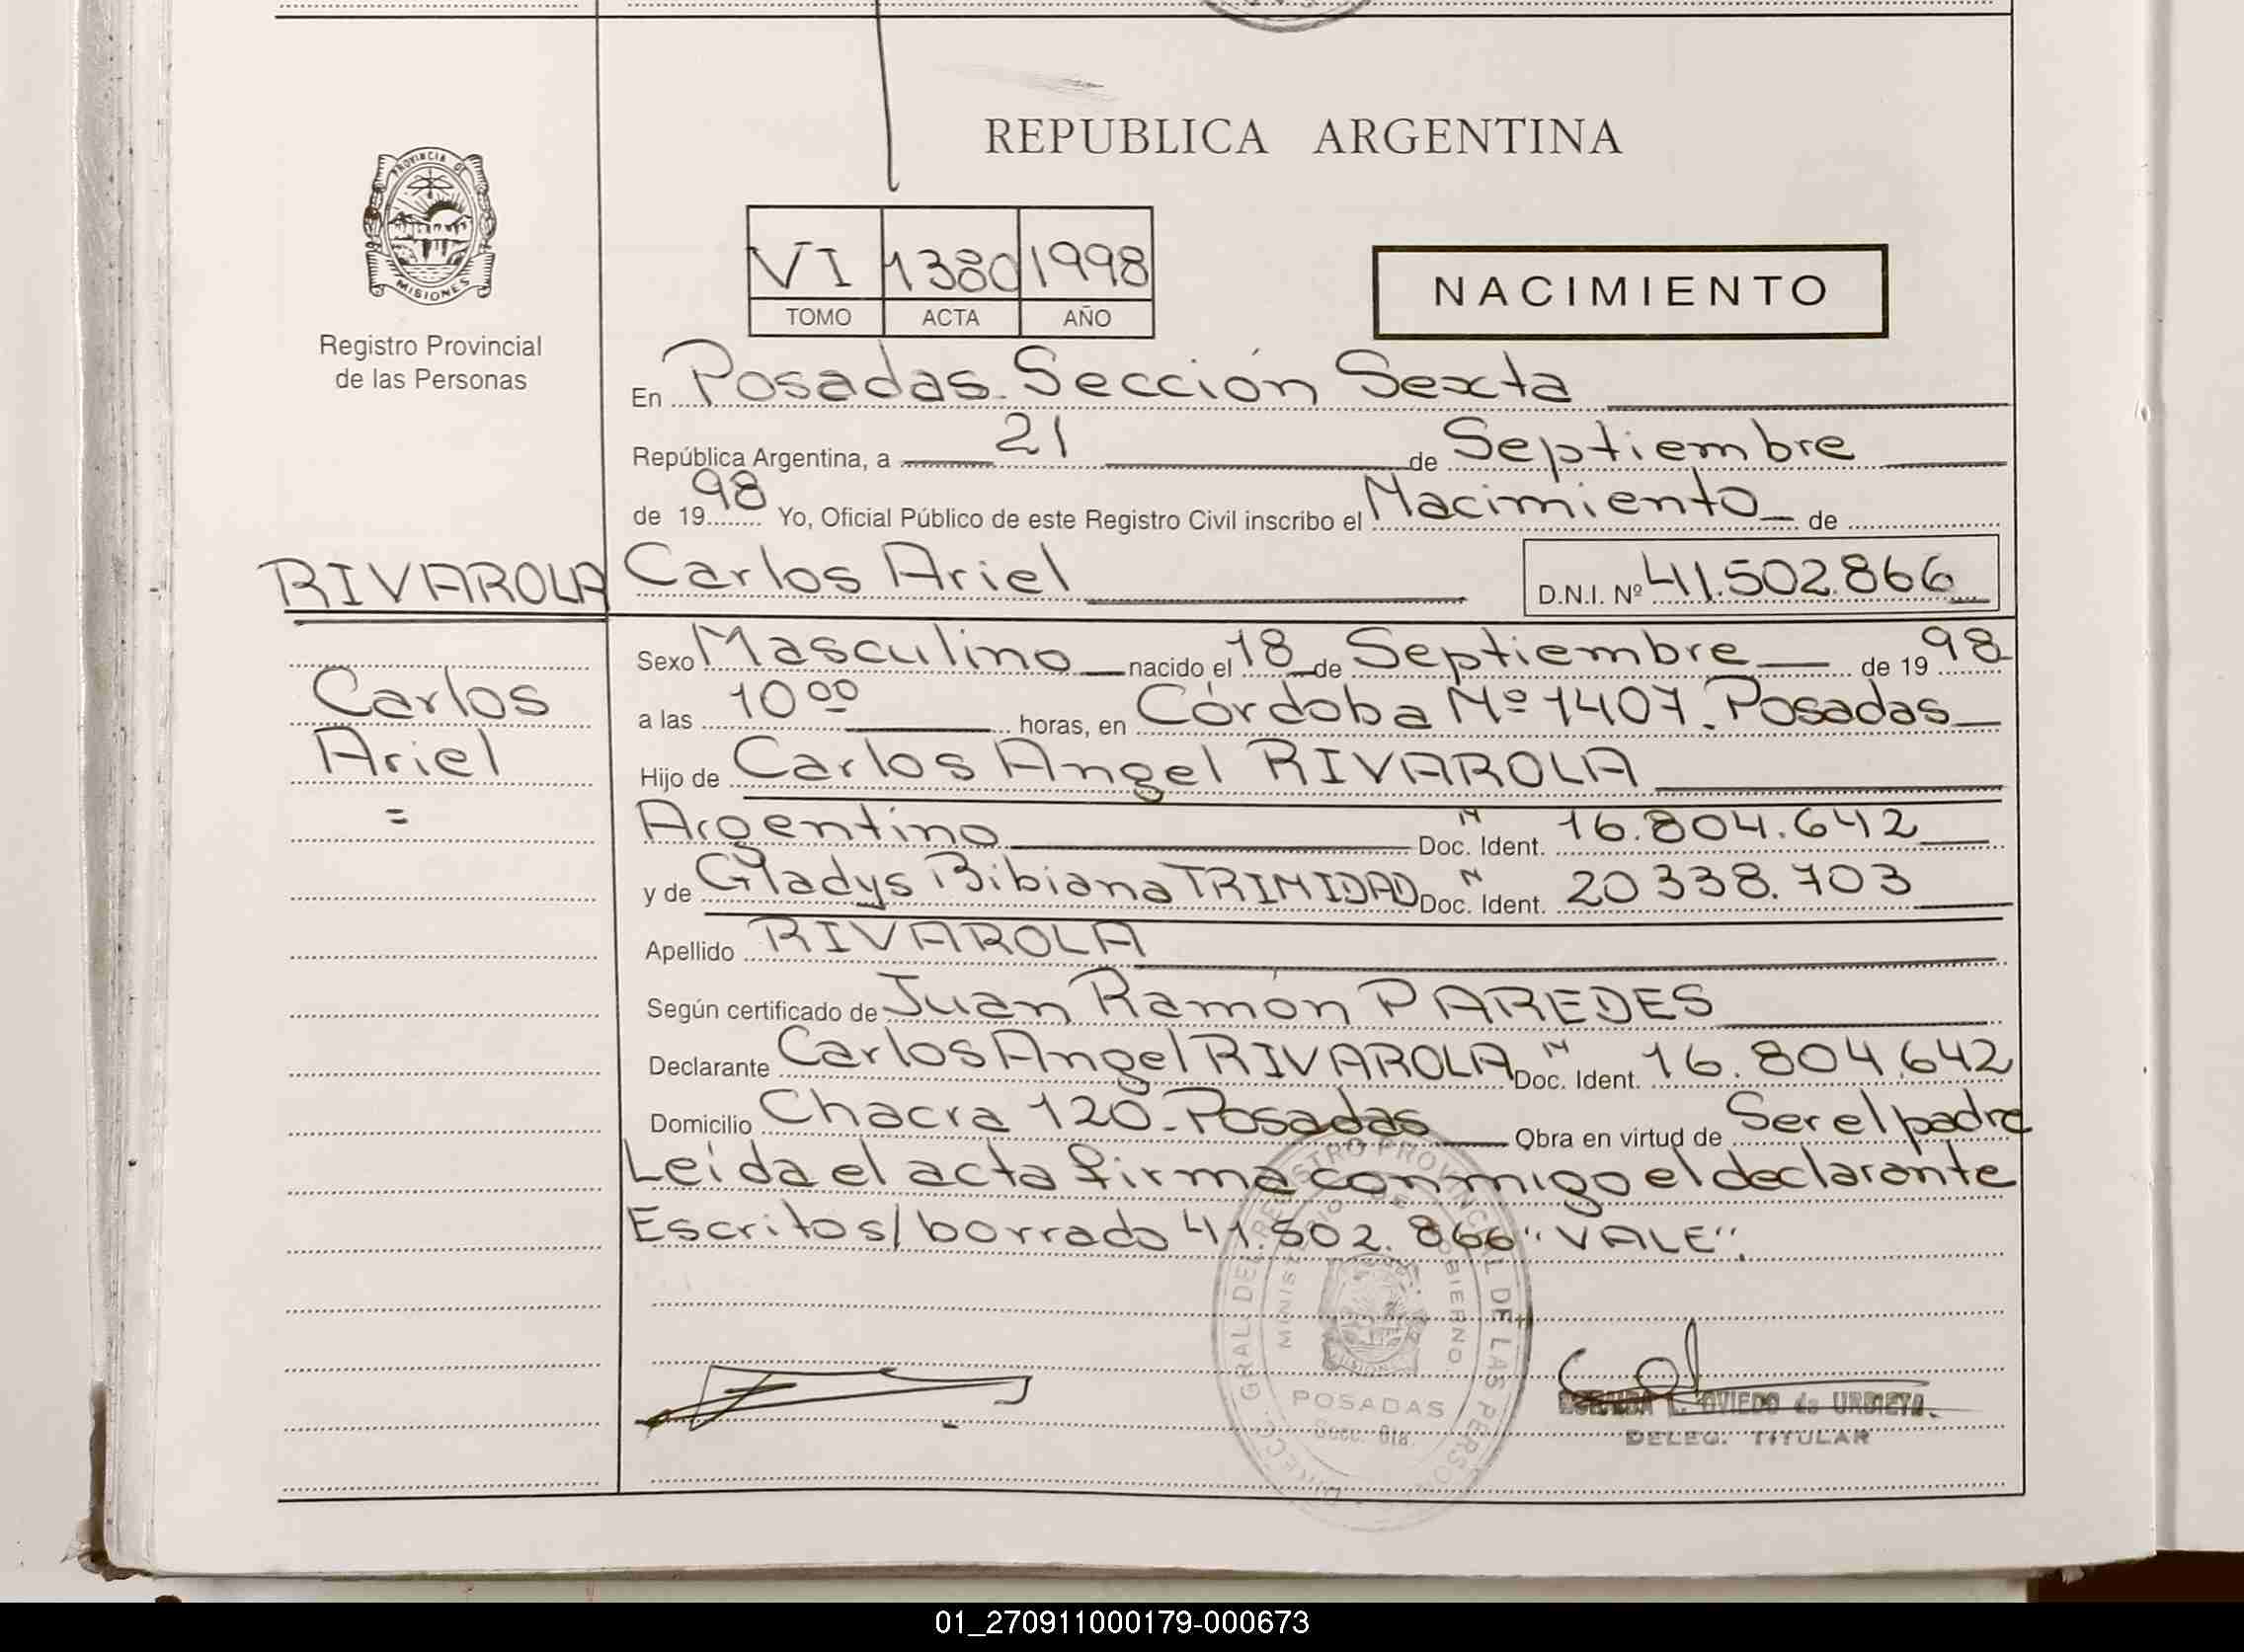 REPUBLICA ARGENTINA
PROVINCIA DE
MISIONES
Registro Provincial
de las Personas
VI 1380 1998
TOMO ACTA AÑO
NACIMIENTO
En Posadas. Sección Sexta
República Argentina, a 21 de Septiembre
de 1998 Yo, Oficial Público de este Registro Civil inscribo el Nacimiento de
RIVAROLA Carlos Ariel D.N.I. Nº 41.502.866
Sexo Masculino nacido el 18 de Septiembre de 1998
Carlos
a las 10 00 horas, en Córdoba Nº 1407. Posadas
Ariel
Hijo de Carlos Angel RIVAROLA
=
Argentino Doc. Ident. N 16.804.642
y de Gladys Bibiana TRINIDAD Doc. Ident. N 20338.703
Apellido RIVAROLA
Según certificado de Juan Ramón PAREDES
Declarante Carlos Angel RIVAROLA Doc. Ident. N 16.804.642
Domicilio Chacra 120. Posadas Obra en virtud de Ser el padre
Leída el acta firma conmigo el declarante
Escritos/borrado 41.502.866 "VALE".
DIRECC. GRAL. DEL REGISTRO PROVINCIAL DE LAS PERSON
MINISTERIO DE GOBIERNO
POSADAS
Secc. 6ta.
OVIEDO de URDIETA.
DELEG. TITULAR
01_270911000179-000673